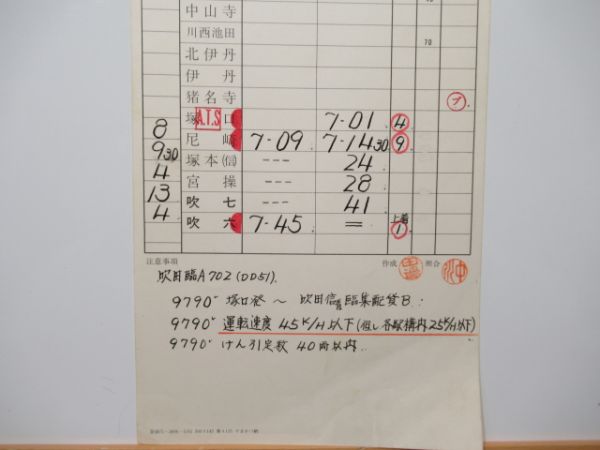 中山寺
川西池田
北伊丹 70
伊丹
猪名寺
塚口 A.T.S 7-01 4
8
尼崎 7-09 7-14 30 9
9 30
塚本(信) --- 24
4
宮操 --- 28
13
吹七 --- 41
4
吹六 7-45 = 1
注意事項 作成 照合
吹田臨A702 (DD51).
9790ᴸ 塚口発 ～ 吹田信 臨集配貨B.
9790ᴸ 運転速度 45K/H以下(但し各駅構内25K/H以下)
9790ᴸ けん引定数 40両以内.